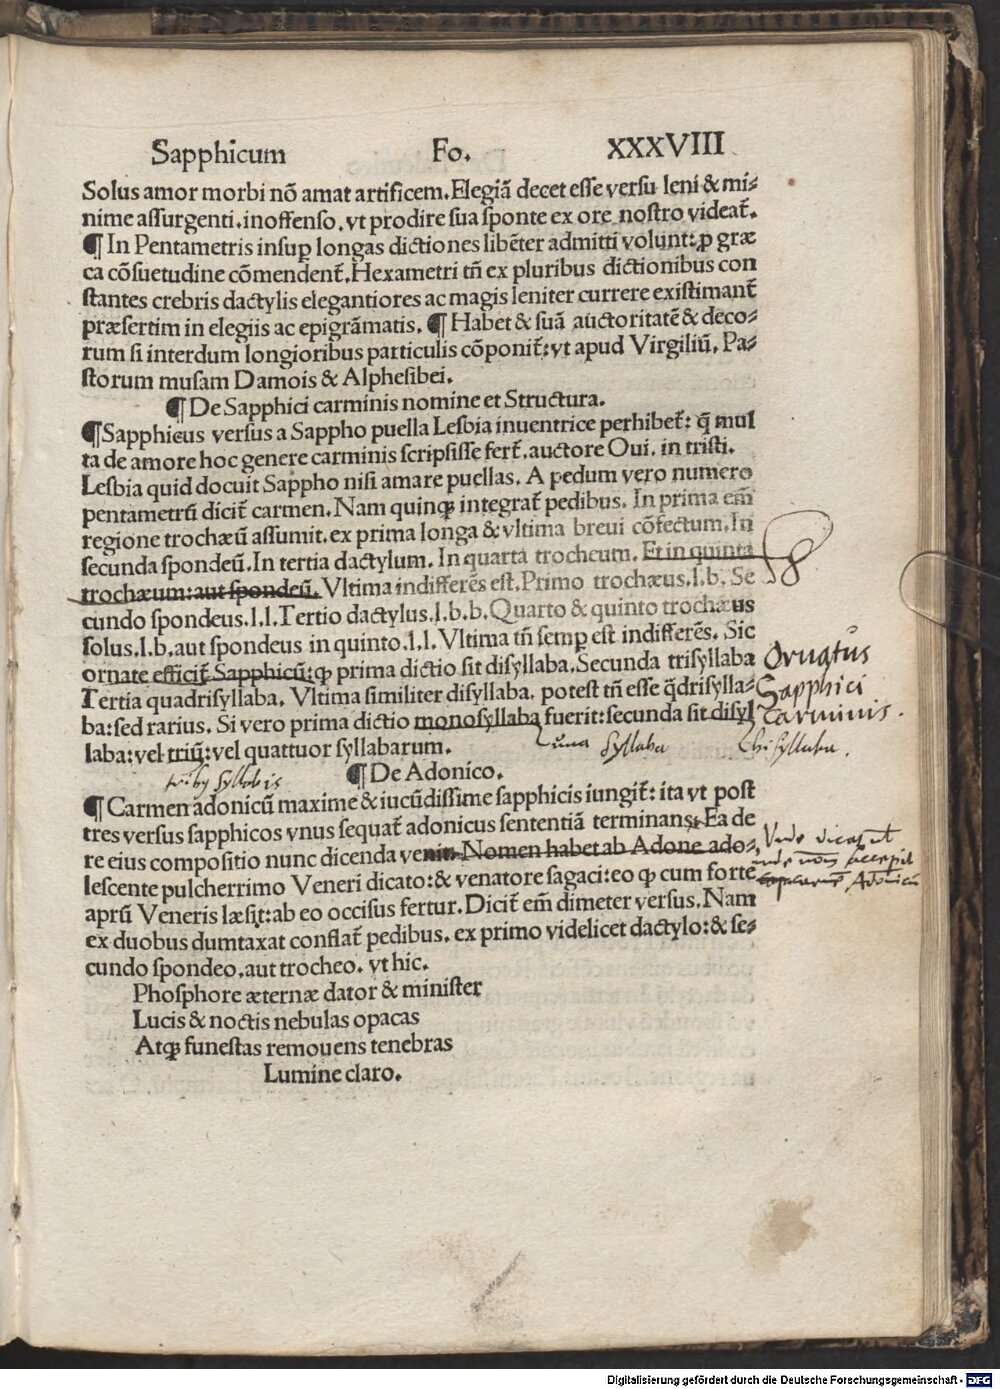 Sapphicum Fo. XXXVIII
Solus amor morbi nō amat artificem. Elegiā decet esse versu leni & mi⸗
nime assurgenti. inoffenso. vt prodire sua sponte ex ore nostro videat̃.
¶ In Pentametris insup longas dictiones libēter admitti volunt: ꝓ græ
ca cōsuetudine cōmendent̃. Hexametri tñ ex pluribus dictionibus con
stantes crebris dactylis elegantiores ac magis leniter currere existimant̃
præsertim in elegiis ac epigrāmatis. ¶ Habet & suā auctoritatē & deco⸗
rum si interdum longioribus particulis cōponit̃: vt apud Virgiliū. Pa⸗
storum musam Damois & Alphesibei.
¶ De Sapphici carminis nomine et Structura.
¶ Sapphicus versus a Sappho puella Lesbia inuentrice perhibet̃: q̄ mul
ta de amore hoc genere carminis scripsisse fert̃. auctore Oui. in tristi.
Lesbia quid docuit Sappho nisi amare puellas. A pedum vero numero
pentametrū dicit̃ carmen. Nam quinqꝫ integrat̃ pedibus. In prima em̄
regione trochæū assumit. ex prima longa & vltima breui cōfectum. In
secunda spondeū. In tertia dactylum. In quarta trocheum. Et in quinta
trochæum: aut spondeū. Vltima indifferēs est. Primo trochæus. l. b. Se
cundo spondeus. l. l. Tertio dactylus. l. b. b. Quarto & quinto trochæus
solus. l. b. aut spondeus in quinto. l. l. Vltima tñ semp est indifferēs. Sic
ornate efficit̃ Sapphicū: ꝙ prima dictio sit disyllaba. Secunda trisyllaba
Ornatus
Tertia quadrisyllaba. Vltima similiter disyllaba. potest tñ esse q̄drisylla⸗
Sapphici
ba: sed rarius. Si vero prima dictio monosyllaba fuerit: secunda sit disyl
Carminis.
laba: vel triū: vel quattuor syllabarum.
una syllaba
bisyllaba.
tribus syllabis
¶ De Adonico.
¶ Carmen adonicū maxime & iucūdissime sapphicis iungit̃: ita vt post
tres versus sapphicos vnus sequat̃ adonicus sententiā terminans. Ea de
re eius compositio nunc dicenda venit. Nomen habet ab Adone ado⸗
Unde dicatur
lescente pulcherrimo Veneri dicato: & venatore sagaci: eo ꝙ cum forte
Adonicum
aprū Veneris læsit: ab eo occisus fertur. Dicit̃ em̄ dimeter versus. Nam
ex duobus dumtaxat conflat̃ pedibus. ex primo videlicet dactylo: & se⸗
cundo spondeo. aut trocheo. vt hic.
Phosphore æternæ dator & minister
Lucis & noctis nebulas opacas
Atqꝫ funestas remouens tenebras
Lumine claro.
Digitalisierung gefördert durch die Deutsche Forschungsgemeinschaft - DFG